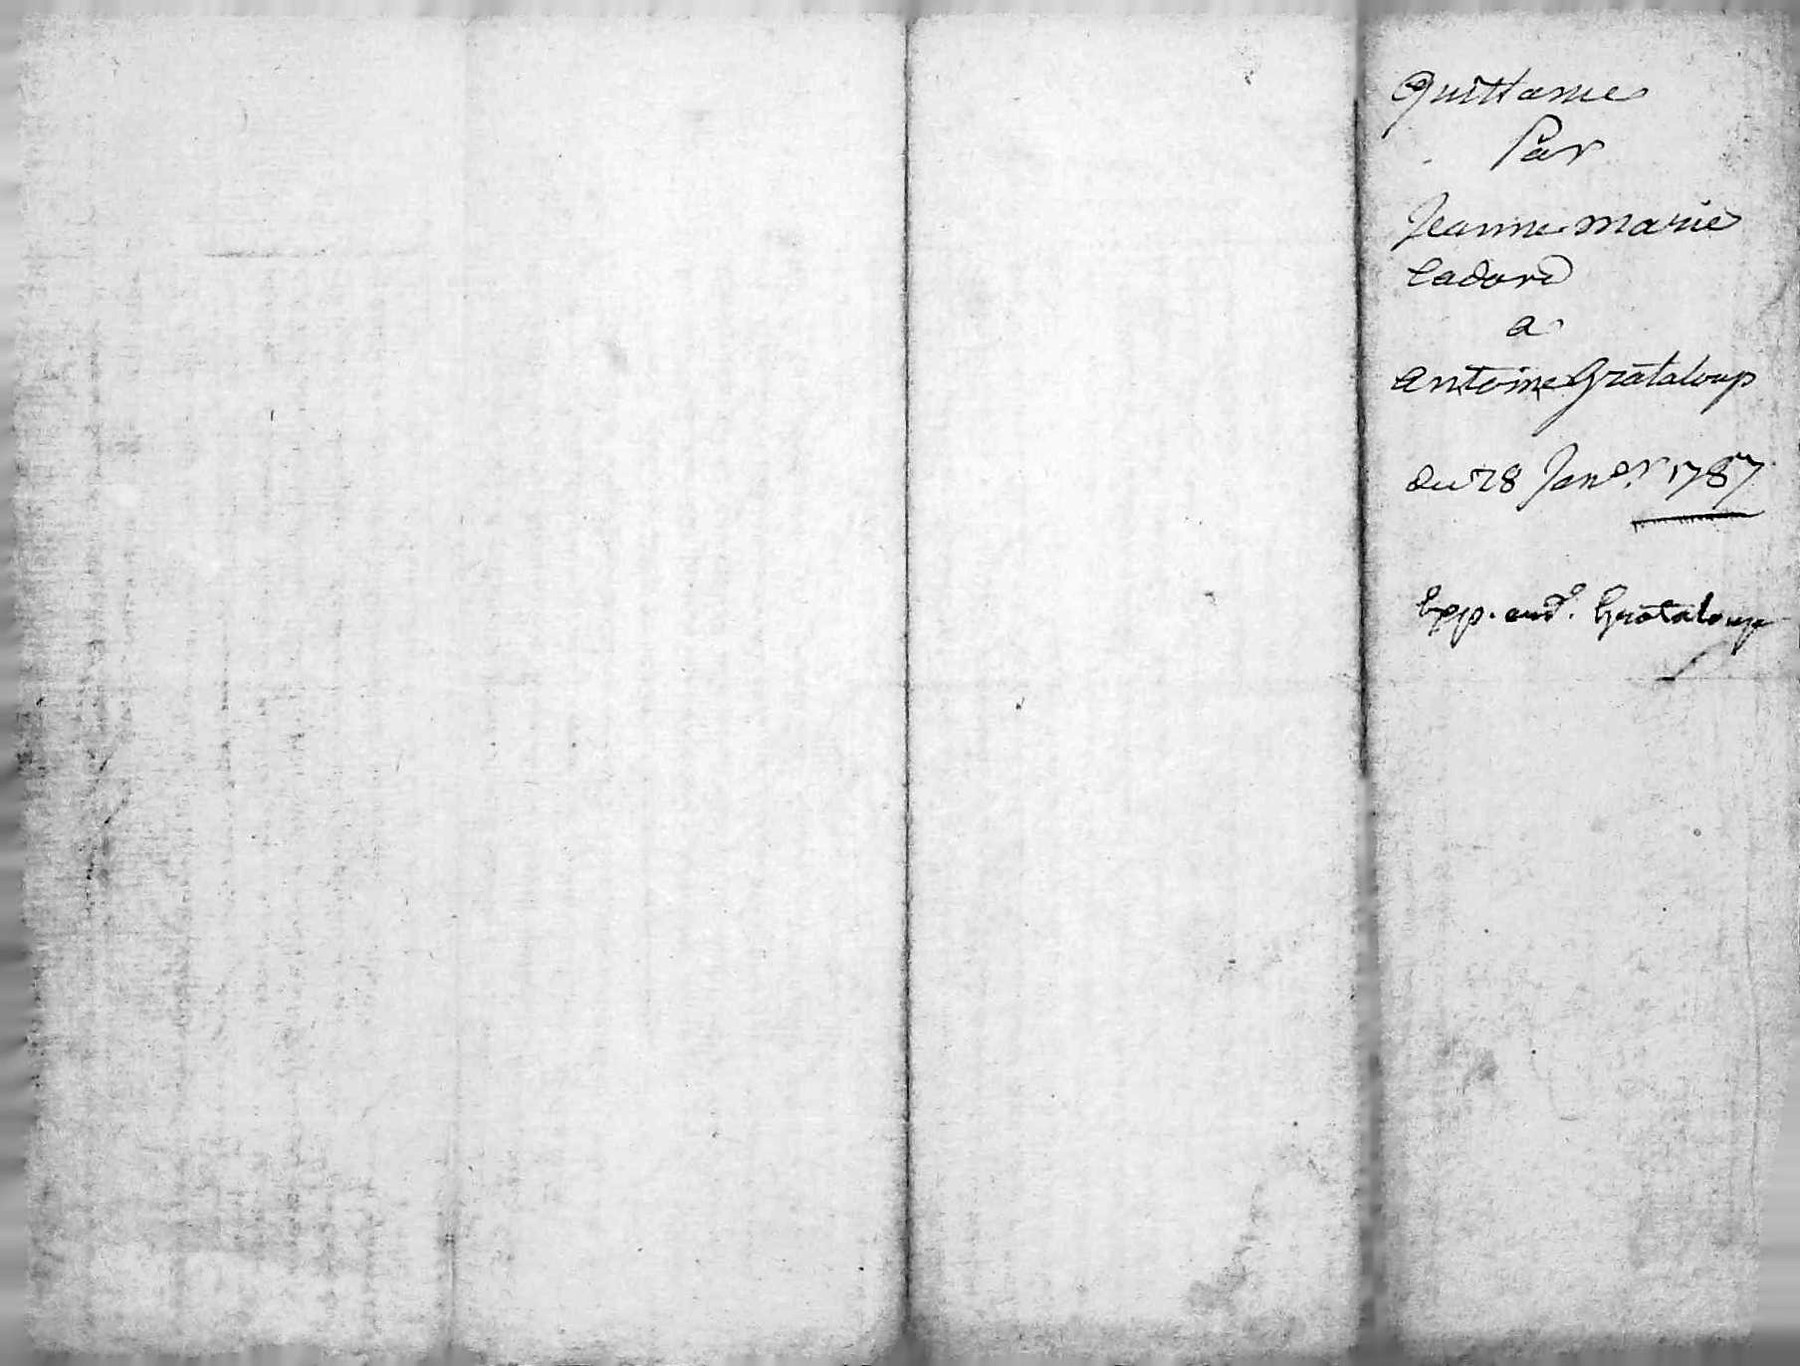 Quittance
Par
Jeanne marie
Cadore
a
Antoine Grataloup
du 28 Janer. 1787
Exp. aud. Grataloup